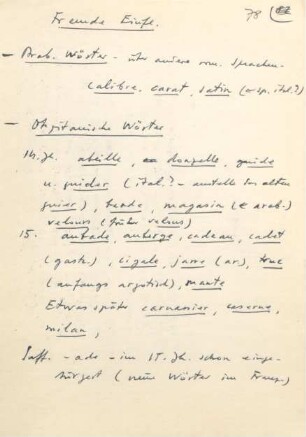 Fremde Einfl.
78
— Arab. Wörter - über andere rom. Sprachen
calibre, carat, satin (← sp. ital.?)
— Okzitanische Wörter
14. Jh. abeille, donzelle, guide
u. guider (ital.? - anstelle des alten
guier), rade, magasin (← arab.)
velours (früher velous)
15. aubade, auberge, cadeau, cadet
(gask.), cigale, jarre (ar.), truc
(anfangs argotisch), mante
Etwas später carnassier, caserne,
milan,
Suff. -ade - im 15. Jh. schon einge-
bürgert (neue Wörter im Franz.)